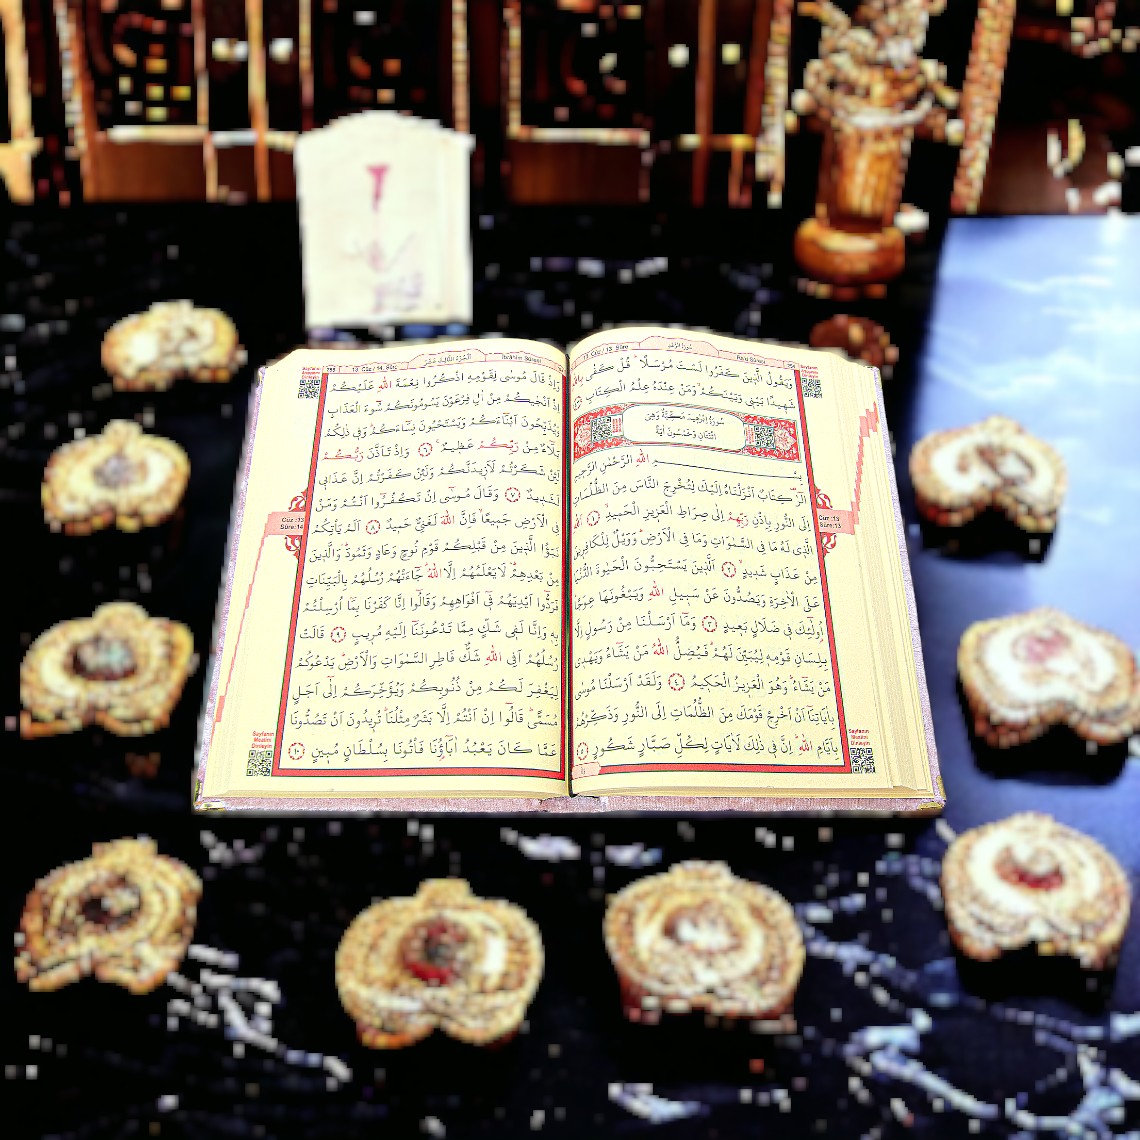 13. Cüz / 13. Sûre
سُورَةُ الرَّعْدِ
Ra'd Sûresi
وَيَقُولُ الَّذِينَ كَفَرُوا لَسْتَ مُرْسَلًا قُلْ كَفٰى بِاللّٰهِ
شَهِيدًا بَيْنِي وَبَيْنَكُمْ وَمَنْ عِنْدَهُ عِلْمُ الْكِتَابِ
سُورَةُ اِبْرٰهِيمَ مَكِّيَّةٌ وَهِيَ
اِثْنَتَانِ وَخَمْسُونَ اٰيَةً
بِسْمِ اللّٰهِ الرَّحْمٰنِ الرَّحِيمِ
الٓرٰ كِتَابٌ اَنْزَلْنَاهُ اِلَيْكَ لِتُخْرِجَ النَّاسَ مِنَ الظُّلُمَاتِ
اِلَى النُّورِ بِاِذْنِ رَبِّهِمْ اِلٰى صِرَاطِ الْعَزِيزِ الْحَمِيدِ ١ اَللّٰهِ
الَّذِي لَهُ مَا فِي السَّمٰوَاتِ وَمَا فِي الْاَرْضِ وَوَيْلٌ لِلْكَافِرِينَ
مِنْ عَذَابٍ شَدِيدٍ ٢ اَلَّذِينَ يَسْتَحِبُّونَ الْحَيٰوةَ الدُّنْيَا
عَلَى الْاٰخِرَةِ وَيَصُدُّونَ عَنْ سَبِيلِ اللّٰهِ وَيَبْغُونَهَا عِوَجًا
اُولٰٓئِكَ فِي ضَلَالٍ بَعِيدٍ ٣ وَمَٓا اَرْسَلْنَا مِنْ رَسُولٍ اِلَّا
بِلِسَانِ قَوْمِهِ لِيُبَيِّنَ لَهُمْ فَيُضِلُّ اللّٰهُ مَنْ يَشَٓاءُ وَيَهْدِي
مَنْ يَشَٓاءُ وَهُوَ الْعَزِيزُ الْحَكِيمُ ٤ وَلَقَدْ اَرْسَلْنَا مُوسٰى
بِاٰيَاتِنَٓا اَنْ اَخْرِجْ قَوْمَكَ مِنَ الظُّلُمَاتِ اِلَى النُّورِ وَذَكِّرْهُمْ
بِاَيَّامِ اللّٰهِ اِنَّ فِي ذٰلِكَ لَاٰيَاتٍ لِكُلِّ صَبَّارٍ شَكُورٍ ٥
Cüz :13
Sûre:13
Sayfanın
Mealini
Dinleyin
255
13. Cüz / 14. Sûre
اَلْجُزْءُ الثَّالِثَ عَشَرَ
İbrâhim Sûresi
وَاِذْ قَالَ مُوسٰى لِقَوْمِهِ اذْكُرُوا نِعْمَةَ اللّٰهِ عَلَيْكُمْ
اِذْ اَنْجٰيكُمْ مِنْ اٰلِ فِرْعَوْنَ يَسُومُونَكُمْ سُٓوءَ الْعَذَابِ
وَيُذَبِّحُونَ اَبْنَٓاءَكُمْ وَيَسْتَحْيُونَ نِسَٓاءَكُمْ وَفِي ذٰلِكُمْ
بَلَٓاءٌ مِنْ رَبِّكُمْ عَظِيمٌ ٦ وَاِذْ تَاَذَّنَ رَبُّكُمْ
لَئِنْ شَكَرْتُمْ لَاَزِيدَنَّكُمْ وَلَئِنْ كَفَرْتُمْ اِنَّ عَذَابِي
لَشَدِيدٌ ٧ وَقَالَ مُوسٰٓى اِنْ تَكْفُرُٓوا اَنْتُمْ وَمَنْ
فِي الْاَرْضِ جَمِيعًا فَاِنَّ اللّٰهَ لَغَنِيٌّ حَمِيدٌ ٨ اَلَمْ يَأْتِكُمْ
نَبَؤُا الَّذِينَ مِنْ قَبْلِكُمْ قَوْمِ نُوحٍ وَعَادٍ وَثَمُودَ وَالَّذِينَ
مِنْ بَعْدِهِمْ لَا يَعْلَمُهُمْ اِلَّا اللّٰهُ جَٓاءَتْهُمْ رُسُلُهُمْ بِالْبَيِّنَاتِ
فَرَدُّٓوا اَيْدِيَهُمْ فِٓي اَفْوَاهِهِمْ وَقَالُٓوا اِنَّا كَفَرْنَا بِمَٓا اُرْسِلْتُمْ
بِهِ وَاِنَّا لَفِي شَكٍّ مِمَّا تَدْعُونَنَٓا اِلَيْهِ مُرِيبٍ ٩ قَالَتْ
رُسُلُهُمْ اَفِي اللّٰهِ شَكٌّ فَاطِرِ السَّمٰوَاتِ وَالْاَرْضِ يَدْعُوكُمْ
لِيَغْفِرَ لَكُمْ مِنْ ذُنُوبِكُمْ وَيُؤَخِّرَكُمْ اِلٰٓى اَجَلٍ
مُسَمًّى قَالُٓوا اِنْ اَنْتُمْ اِلَّا بَشَرٌ مِثْلُنَا تُرِيدُونَ اَنْ تَصُدُّونَا
عَمَّا كَانَ يَعْبُدُ اٰبَٓاؤُ۬نَا فَأْتُونَا بِسُلْطَانٍ مُبِينٍ ١٠
Cüz :13
Sûre:14
Sayfanın
Mealini
Dinleyin